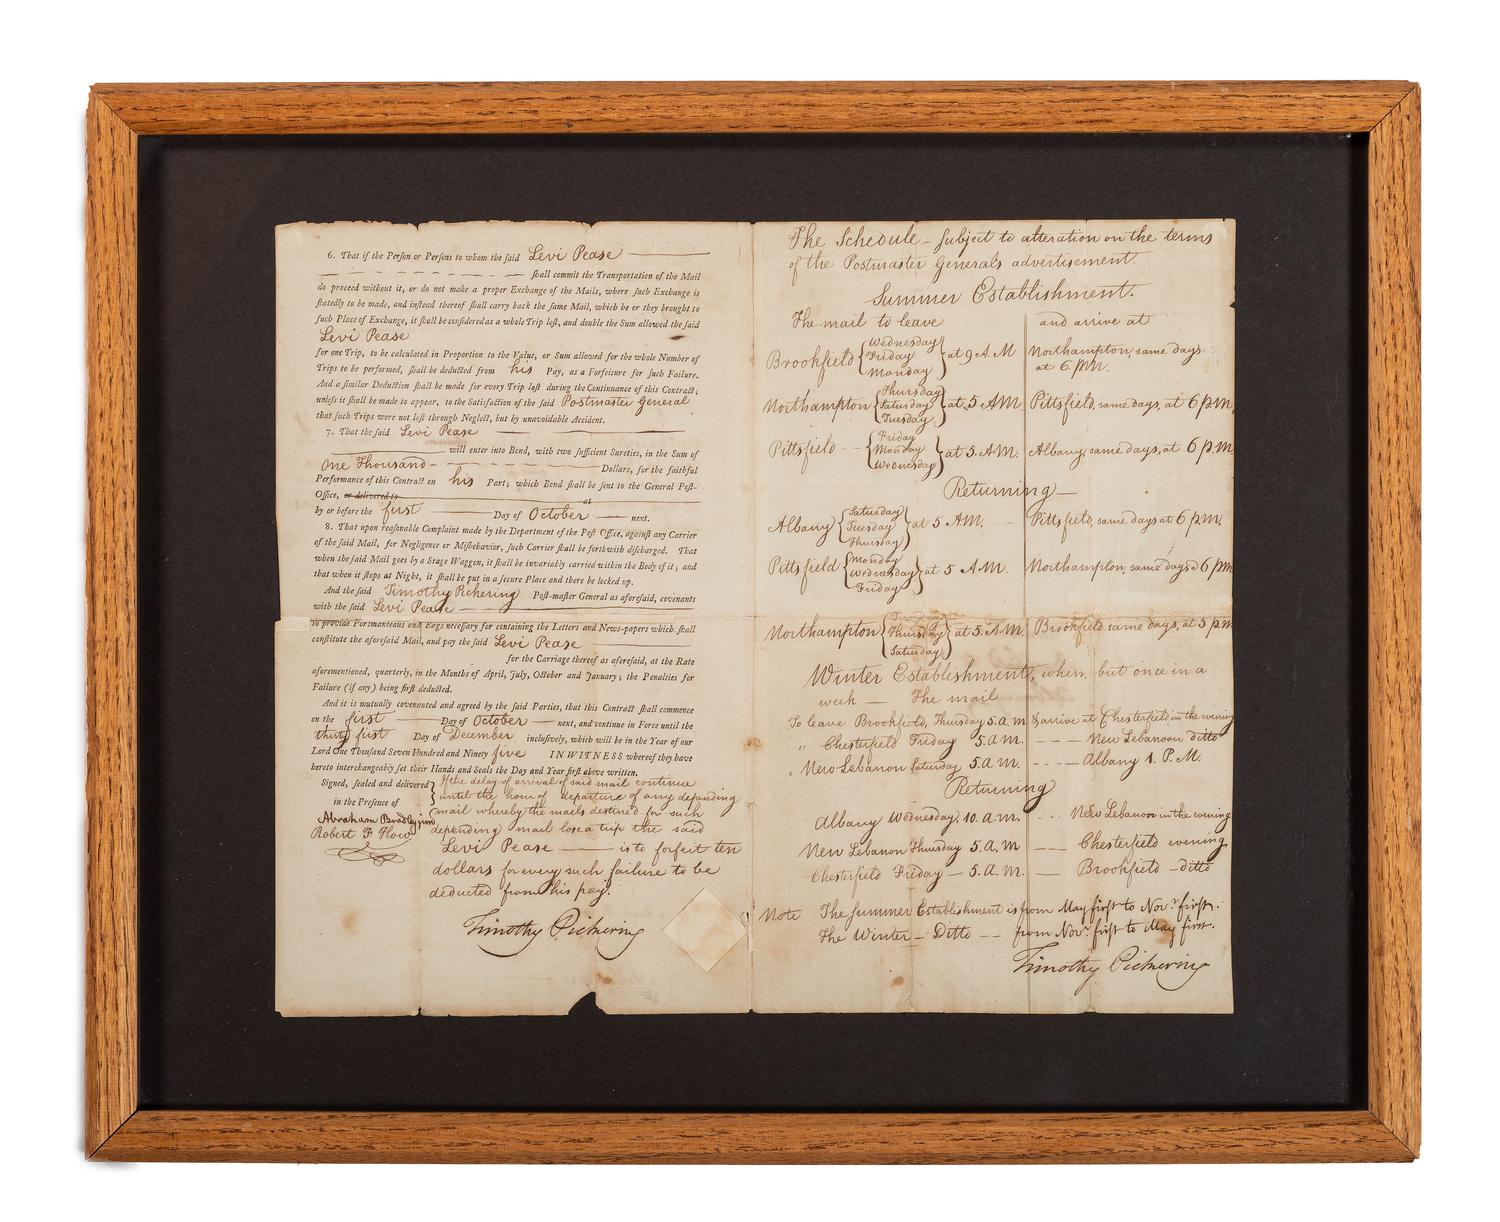 6. That if the Person or Persons to whom the said Levi Pease
shall commit the Transportation of the Mail
do proceed without it, or do not make a proper Exchange of the Mails, where such Exchange is
statedly to be made, and instead thereof shall carry back the same Mail, which he or they brought to
such Place of Exchange, it shall be considered as a whole Trip lost, and double the Sum allowed the said
Levi Pease
for one Trip, to be calculated in Proportion to the Value, or Sum allowed for the whole Number of
Trips to be performed, shall be deducted from his Pay, as a Forfeiture for such Failure.
And a similar Deduction shall be made for every Trip lost during the Continuance of this Contract;
unless it shall be made to appear, to the Satisfaction of the said Postmaster General
that such Trips were not lost through Neglect, but by unavoidable Accident.
7. That the said Levi Pease
will enter into Bond, with two sufficient Sureties, in the Sum of
One Thousand Dollars, for the faithful
Performance of this Contract on his Part; which Bond shall be sent to the General Post-
Office, or delivered to at
by or before the first Day of October next.
8. That upon reasonable Complaint made by the Department of the Post Office, against any Carrier
of the said Mail, for Negligence or Misbehavior, such Carrier shall be forthwith discharged. That
when the said Mail goes by a Stage Waggon, it shall be invariably carried within the Body of it; and
that when it stops at Night, it shall be put in a secure Place and there be locked up.
And the said Timothy Pickering Post-master General as aforesaid, covenants
with the said Levi Pease
to provide Portmanteaus and Bags necessary for containing the Letters and News-papers which shall
constitute the aforesaid Mail, and pay the said Levi Pease
for the Carriage thereof as aforesaid, at the Rate
aforementioned, quarterly, in the Months of April, July, October and January; the Penalties for
Failure (if any) being first deducted.
And it is mutually covenanted and agreed by the said Parties, that this Contract shall commence
on the first Day of October next, and continue in Force until the
thirty first Day of December inclusively, which will be in the Year of our
Lord One Thousand Seven Hundred and Ninety five IN WITNESS whereof they have
hereto interchangeably set their Hands and Seals the Day and Year first above written.
Signed, sealed and delivered
in the Presence of
Abraham Bradley jun
Robert F How
If the delay of arrival of said mail continue
until the hour of departure of any depending
mail whereby the mails destined for such
depending mail lose a trip the said
Levi Pease is to forfeit ten
dollars for every such failure to be
deducted from his pay.
Timothy Pickering
The Schedule – subject to alteration on the terms
of the Postmaster General's advertisement.
Summer Establishment.
The mail to leave and arrive at
Brookfield { Wednesday Friday Monday } at 9 A.M Northampton, same days at 6 P.M.
Northampton { Thursday Saturday Tuesday } at 5 A.M. Pittsfield, same days, at 6 p.m.
Pittsfield { Friday Monday Wednesday } at 5 A.M. Albany, same days, at 6 p.m.
Returning
Albany { Saturday Tuesday Thursday } at 5 A.M. Pittsfield, same days at 6 p.m.
Pittsfield { Monday Wednesday Friday } at 5 A.M. Northampton, same days 6 p.m
Northampton { Thursday Saturday } at 5 A.M. Brookfield same days, at 5 p.m
Winter Establishment, when, but once in a
week – The mail
To leave Brookfield, Thursday 5 a.m & arrive at Chesterfield in the evening
" Chesterfield Friday 5 a.m. New Lebanon ditto
" New Lebanon Saturday 5 a.m. Albany 1. P.M.
Returning
Albany Wednesday, 10. a.m. New Lebanon in the evening
New Lebanon Thursday 5. a.m Chesterfield evening
Chesterfield Friday – 5. a.m. Brookfield – ditto
Note The Summer Establishment is from May first to Novr. first.
The Winter – Ditto – from Novr. first to May first.
Timothy Pickering